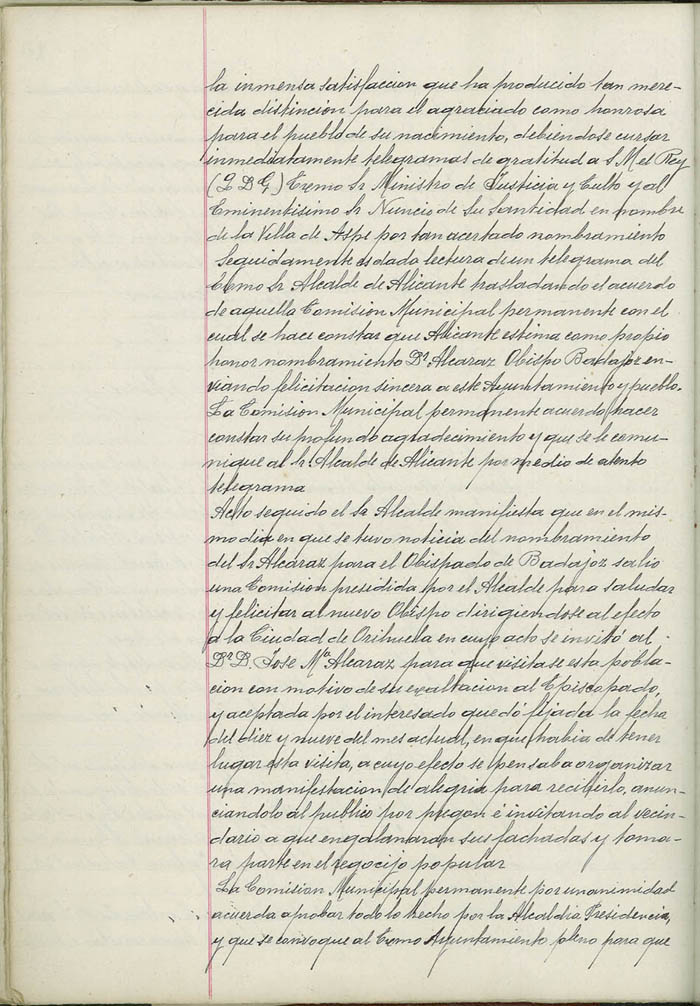 la inmensa satisfaccion que ha producido tan mere-
cida distincion para el agraciado como honrosa
para el pueblo de su nacimiento, debiendose cursar
inmediatamente telegramas de gratitud a S. M. el Rey
(Q D G,) Excmo Sr Ministro de Justicia y Culto y al
Eminentisimo Sr Nuncio de Su Santidad en nombre
de la Villa de Aspe por tan acertado nombramiento
Seguidamente es dada lectura de un telegrama del
Excmo Sr Alcalde de Alicante trasladando el acuerdo
de aquella Comision Municipal permanente con el
cual se hace constar que Alicante estima como propio
honor nombramiento Dr Alcaraz Obispo Badajoz en-
viando felicitacion sincera a este Ayuntamiento y pueblo.
La Comision Municipal permanente acuerda hacer
constar su profundo agradecimiento y que se le comu-
nique al Sr. Alcalde de Alicante por medio de atento
telegrama
Acto seguido el Sr Alcalde manifiesta que en el mis-
mo dia en que se tuvo noticia del nombramiento
del Sr Alcaraz para el Obispado de Badajoz salio
una Comision presidida por el Alcalde para saludar
y felicitar al nuevo Obispo dirigiendose al efecto
a la Ciudad de Orihuela en cuyo acto se invitó al
Dr D. Jose Mª Alcaraz para que visitase esta pobla-
cion con motivo de su exaltacion al Episcopado,
y aceptada por el interesado quedó fijada la fecha
del diez y nueve del mes actual, en que habia de tener
lugar esta visita, a cuyo efecto se pensaba organizar
una manifestacion de alegria para recibirlo, anun-
ciandolo al publico por pregon é invitando al vecin-
dario a que engalanaran sus fachadas y toma-
ra parte en el regocijo popular
La Comision Municipal permanente por unanimidad
acuerda aprobar todo lo hecho por la Alcaldia Presidencia,
y que se convoque al Excmo Ayuntamiento pleno para que